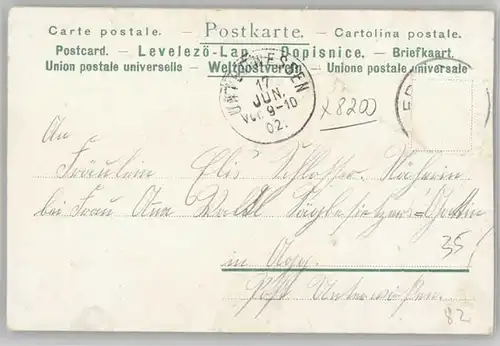 Carte postale. — Postkarte. — Cartolina postale.
Postcard. — Levelező-Lap. — Dopisnice. — Briefkaart.
Union postale universelle — Weltpostverein — Unione postale universale
UNTERWESSEN
17
JUN.
Vor. 9-10
02.
x8200
An
Fräulein Elis Schlosser, Näherin
bei Frau Ana Waldl Sägbesitzers-Gattin
in
Post Unterwössen.
35
82